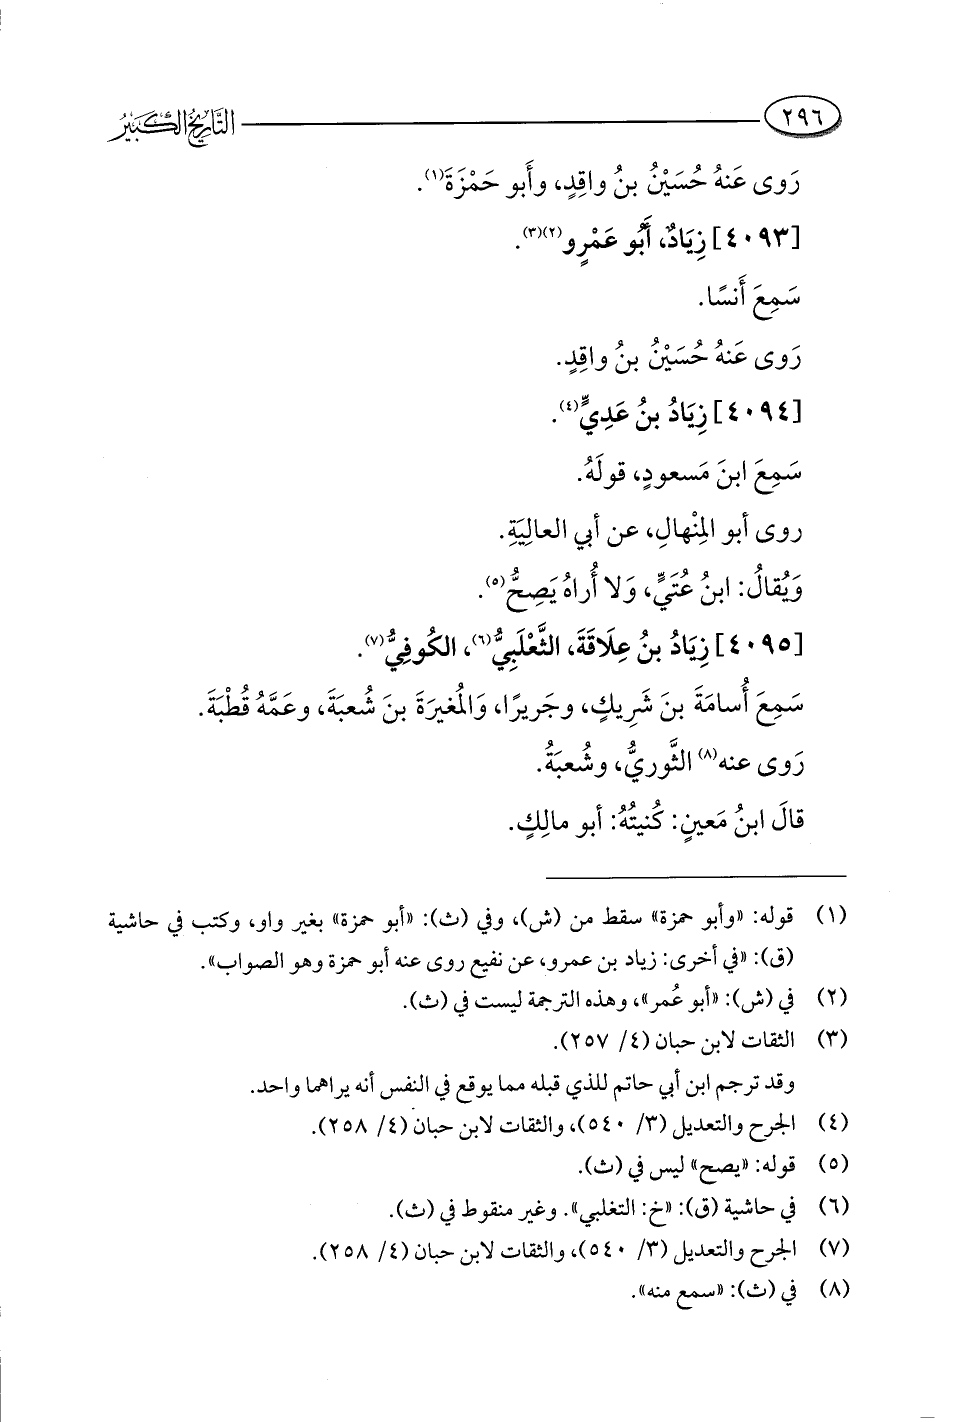 ٢٩٦ التَّارِيخُ الكَبِيرُ
رَوى عَنهُ حُسَيْنُ بنُ واقِدٍ، وأَبو حَمْزَةَ(١).
[٤٠٩٣] زِيَادٌ، أَبُو عَمْرٍو(٢)(٣).
سَمِعَ أَنسًا.
رَوى عَنهُ حُسَيْنُ بنُ واقِدٍ.
[٤٠٩٤] زِيَادُ بنُ عَدِيٍّ(٤).
سَمِعَ ابنَ مَسعودٍ، قولَهُ.
روى أبو المِنْهالِ، عن أبي العالِيَةِ.
وَيُقالُ: ابنُ عُتَيٍّ، وَلا أُراهُ يَصِحُّ(٥).
[٤٠٩٥] زِيَادُ بنُ عِلَاقَةَ، الثَّعْلَبِيُّ(٦)، الكُوفِيُّ(٧).
سَمِعَ أُسامَةَ بنَ شَرِيكٍ، وجَريرًا، وَالمُغيرَةَ بنَ شُعبَةَ، وعَمَّهُ قُطْبَةَ.
رَوى عنه(٨) الثَّوريُّ، وشُعبَةُ.
قالَ ابنُ مَعينٍ: كُنيتُهُ: أبو مالِكٍ.
(١) قوله: «وأبو حمزة» سقط من (ش)، وفي (ث): «أبو حمزة» بغير واو، وكتب في حاشية
(ق): «في أخرى: زياد بن عمرو، عن نفيع روى عنه أبو حمزة وهو الصواب».
(٢) في (ش): «أبو عُمر»، وهذه الترجمة ليست في (ث).
(٣) الثقات لابن حبان (٤/ ٢٥٧).
وقد ترجم ابن أبي حاتم للذي قبله مما يوقع في النفس أنه يراهما واحد.
(٤) الجرح والتعديل (٣/ ٥٤٠)، والثقات لابن حبان (٤/ ٢٥٨).
(٥) قوله: «يصح» ليس في (ث).
(٦) في حاشية (ق): «خ: التغلبي». وغير منقوط في (ث).
(٧) الجرح والتعديل (٣/ ٥٤٠)، والثقات لابن حبان (٤/ ٢٥٨).
(٨) في (ث): «سمع منه».